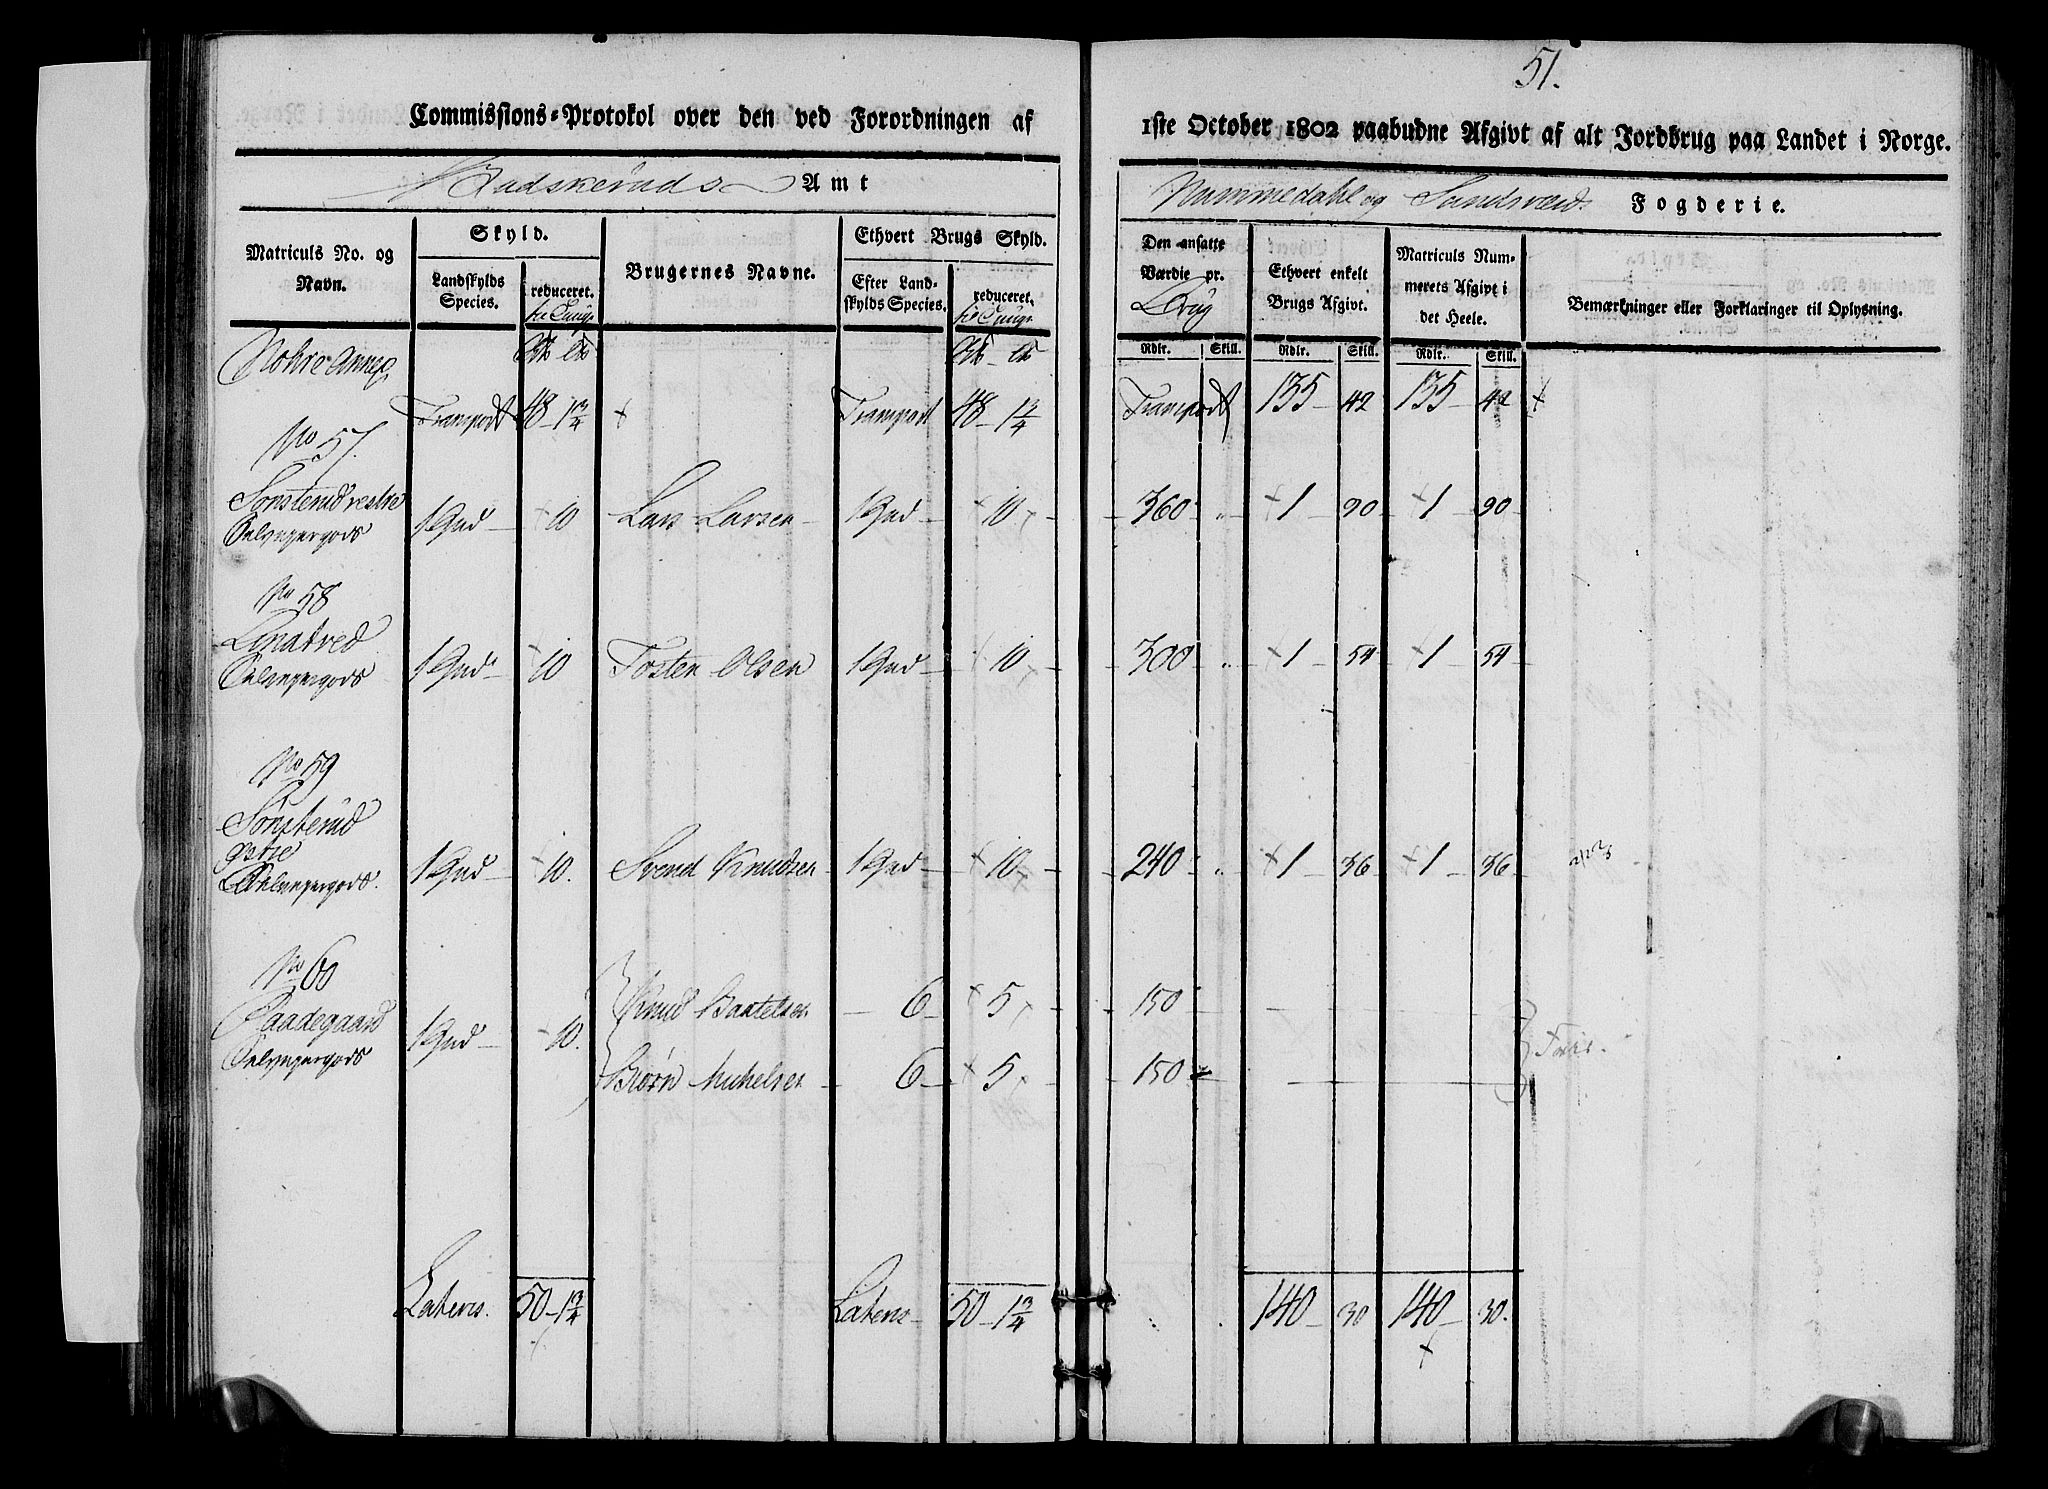 51.
Commissions-Protokol over den ved Forordningen af
1ste October 1802 paabudne Afgivt af alt Jordbrug paa Landet i Norge.
Budskeruds Amt
Nummedahl og Sandsværds Fogderie.
Matriculs No. og Navn.
Skyld.
Landskylds Species.
reduceret. til Tunge
Brugernes Navne.
Ethvert Brugs Skyld.
Efter Landskylds Species.
reduceret. til Tunge
Den ansatte Værdie pr. Brug
Ethvert enkelt Brugs Afgivt.
Matriculs Nummerets Afgivt i det Heele.
Bemærkninger eller Forklaringer til Oplysning.
Rdlr. Skill. Rdlr. Skill. Rdlr. Skill.
Transport 48 - 1 3/4 + Transport 48 - 1 3/4 Transport 135 - 42 135 - 42 +
No 57.
Sønsterud vestre 1 Hud - + 10 Lars Larsen - 1 Hud - + 10 - 360 " + 1 - 90 + 1 - 90 -
Selveyergods
No 58
1 Hud - + 10 Tosten Olsen 1 Hud - 10 - 300 " + 1 - 54 + 1 - 54 -
Selveyergods
No 59
Sønsterud
østre
Selveyergods. 1 Hud - + 10. Svend Knudsen 1 Hud - + 10 - 240 " + 1 - 36 + 1 - 36 -
No 60
Raadegaard 1 Hud - 10. Knud Bartelsen - 6 - + 5 - 150
Selveyergods
Biørn Michelsen - 6 - + 5 - 150
Lateris. 50 - 1 3/4 Lateris - 50 - 1 3/4 140 - 30 140 - 30.
+ +